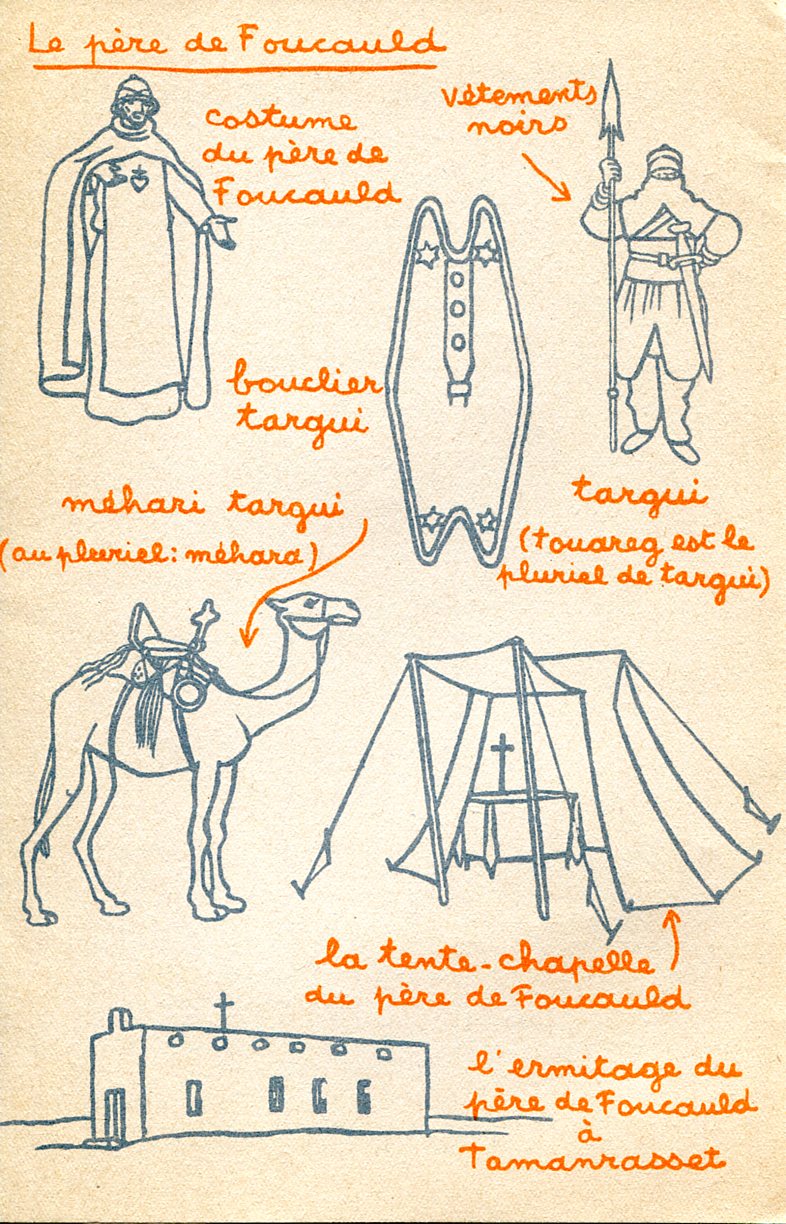 Le père de Foucauld
costume
du père de
Foucauld
vêtements
noirs
bouclier
targui
targui
(touareg est le
pluriel de targui)
méhari targui
(au pluriel: méhara)
la tente-chapelle
du père de Foucauld
l'ermitage du
père de Foucauld
à
Tamanrasset